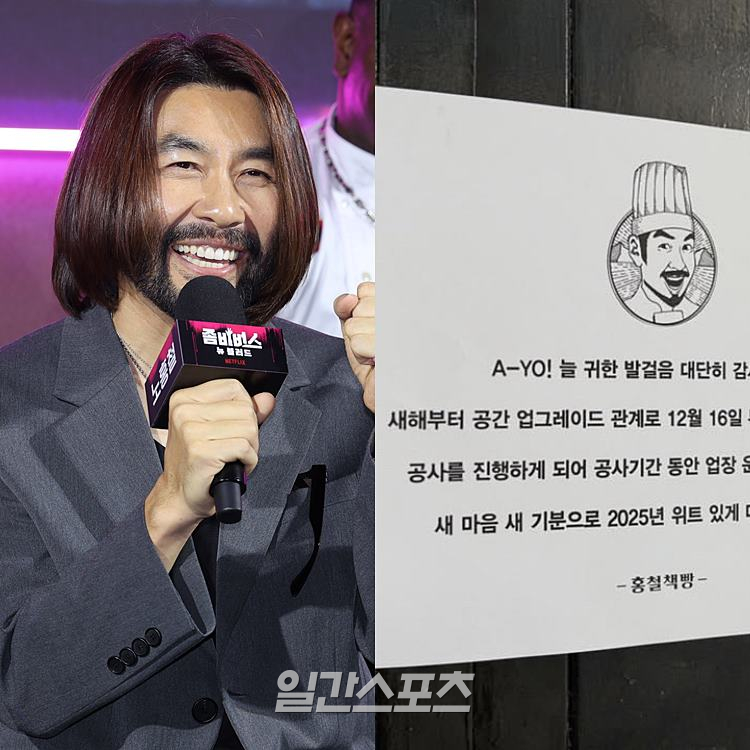 좀비버스
뉴 블러드
NETFLIX
노홍철
A-YO! 늘 귀한 발걸음 대단히
새해부터 공간 업그레이드 관계로 12월 16일
공사를 진행하게 되어 공사기간 동안 업장
새 마음 새 기분으로 2025년 위트 있게
-홍철책빵-
일간스포츠